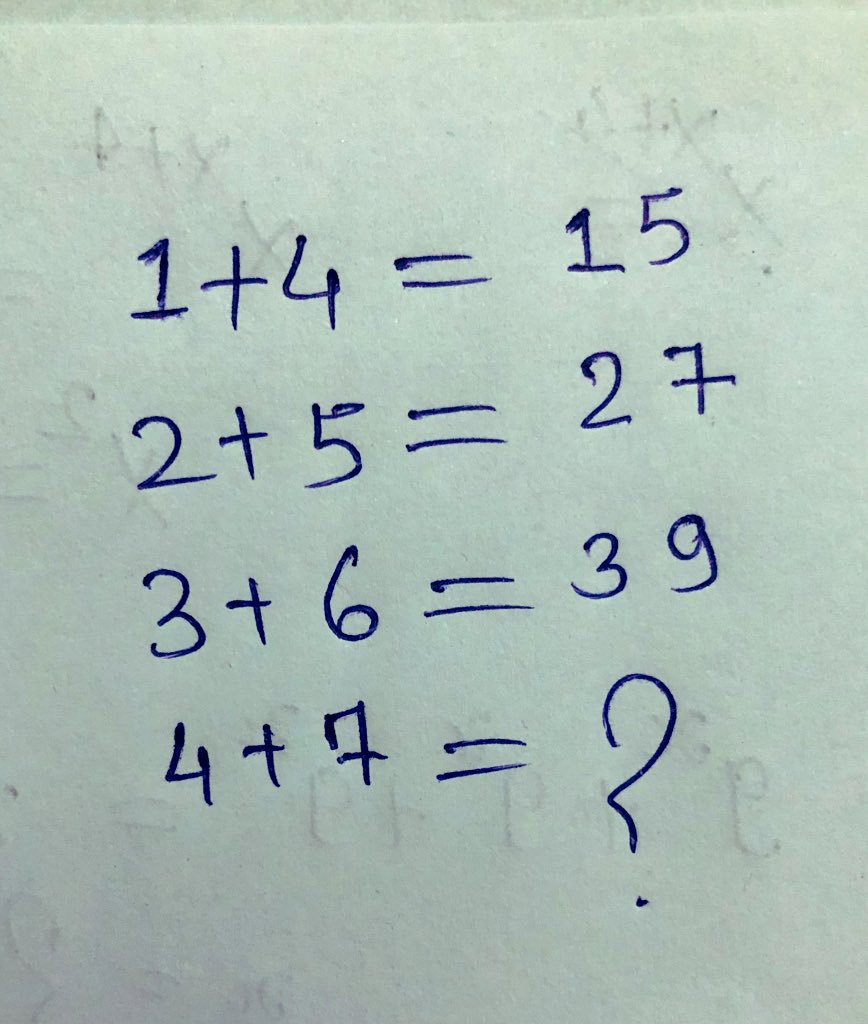 1+4 = 15
2+5 = 27
3+6 = 39
4+7 = ?